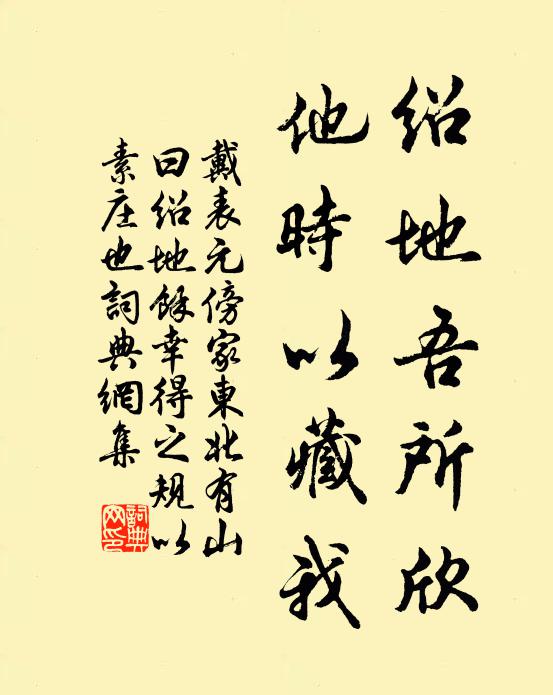 绍地吾所欣
他時以藏我
戴表元傍家東北有山
曰绍地餘幸得之規以
素庄也詞典網集
詞典
网印